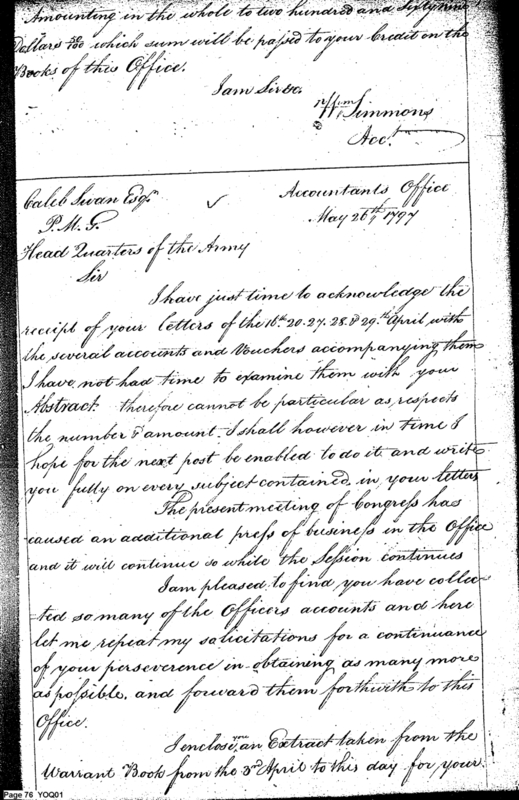 Amounting in the whole to two hundred and Sixty nine
Dollars 50/100 which sum will be passed to your Credit on the
Books of this Office.
I am Sir &c.
Wm Simmons
Acct.
Caleb Swan Esqr.
Accountants Office
P. M. G.
May 26th 1797
Head Quarters of the Army
Sir
I have just time to acknowledge the
receipt of your letters of the 16th 20. 27. 28. & 29th April with
the several accounts and Vouchers accompanying them
I have not had time to examine them with your
Abstract therefore cannot be particular as respects
the number & amount. I shall however in time I
hope for the next post be enabled to do it and write
you fully on every subject contained in your letters
The present meeting of Congress has
caused an additional press of business in the Office
and it will continue so while the Session continues
I am pleased to find you have collec-
-ted so many of the Officers accounts and here
let me repeat my solicitations for a continuance
of your perseverence in obtaining as many more
as possible, and forward them forthwith to this
Office.
I enclose you an Extract taken from the
Warrant Book from the 3rd April to this day for your
Page 76 YOQ01